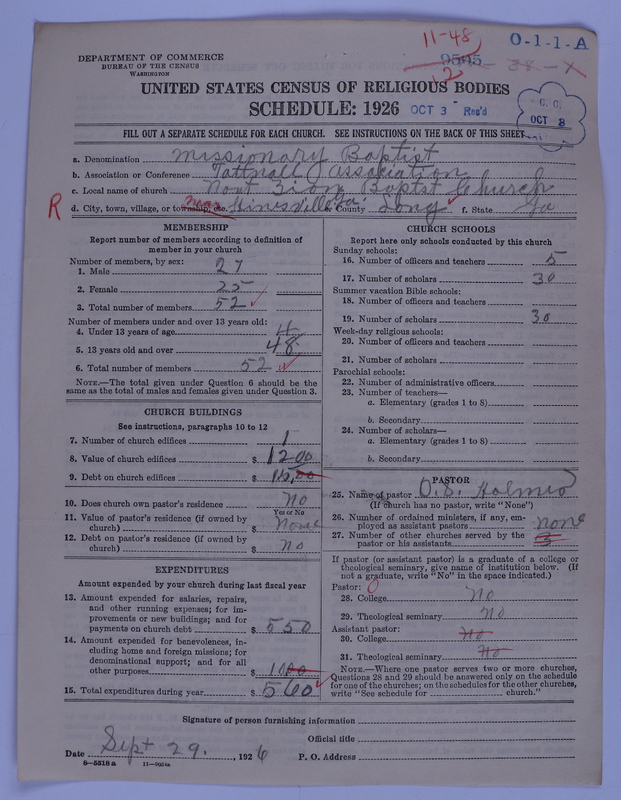 11-48
O-1-1-A
DEPARTMENT OF COMMERCE
BUREAU OF THE CENSUS
WASHINGTON
9505
2
UNITED STATES CENSUS OF RELIGIOUS BODIES
SCHEDULE: 1926
OCT 3 Res'd
C. C.
OCT 8
FILL OUT A SEPARATE SCHEDULE FOR EACH CHURCH. SEE INSTRUCTIONS ON THE BACK OF THIS SHEET
a. Denomination Missionary Baptist
b. Association or Conference Tattnall Association
c. Local name of church Mont Zion Baptst Church
R d. City, town, village, or township, etc. near Hinesville Ga. e. County Long f. State Ga
MEMBERSHIP
Report number of members according to definition of member in your church
Number of members, by sex:
1. Male 27
2. Female 25
3. Total number of members 52
Number of members under and over 13 years old:
4. Under 13 years of age 4
5. 13 years old and over 48
6. Total number of members 52
NOTE.—The total given under Question 6 should be the same as the total of males and females given under Question 3.
CHURCH BUILDINGS
See instructions, paragraphs 10 to 12
7. Number of church edifices 1
8. Value of church edifices $ 1200
9. Debt on church edifices $ 115,00
10. Does church own pastor's residence no
Yes or No
11. Value of pastor's residence (if owned by church) $ none
12. Debt on pastor's residence (if owned by church) $ no
EXPENDITURES
Amount expended by your church during last fiscal year
13. Amount expended for salaries, repairs, and other running expenses; for improvements or new buildings; and for payments on church debt $ 550
14. Amount expended for benevolences, including home and foreign missions; for denominational support; and for all other purposes $ 1000
15. Total expenditures during year $ 560
CHURCH SCHOOLS
Report here only schools conducted by this church
Sunday schools:
16. Number of officers and teachers 5
17. Number of scholars 30
Summer vacation Bible schools:
18. Number of officers and teachers
19. Number of scholars 30
Week-day religious schools:
20. Number of officers and teachers
21. Number of scholars
Parochial schools:
22. Number of administrative officers
23. Number of teachers—
a. Elementary (grades 1 to 8)
b. Secondary
24. Number of scholars—
a. Elementary (grades 1 to 8)
b. Secondary
PASTOR
25. Name of pastor O. S. Holmes
(If church has no pastor, write "None")
26. Number of ordained ministers, if any, employed as assistant pastors none
27. Number of other churches served by the pastor or his assistants 3
If pastor (or assistant pastor) is a graduate of a college or theological seminary, give name of institution below. (If not a graduate, write "No" in the space indicated.)
Pastor: 0
28. College No
29. Theological seminary No
Assistant pastor:
30. College No
31. Theological seminary No
NOTE.—Where one pastor serves two or more churches, Questions 28 and 29 should be answered only on the schedule for one of the churches; on the schedules for the other churches, write "See schedule for church."
Signature of person furnishing information
Official title
Date Sept 29, 1926 P. O. Address
8-5518a 11-9054a